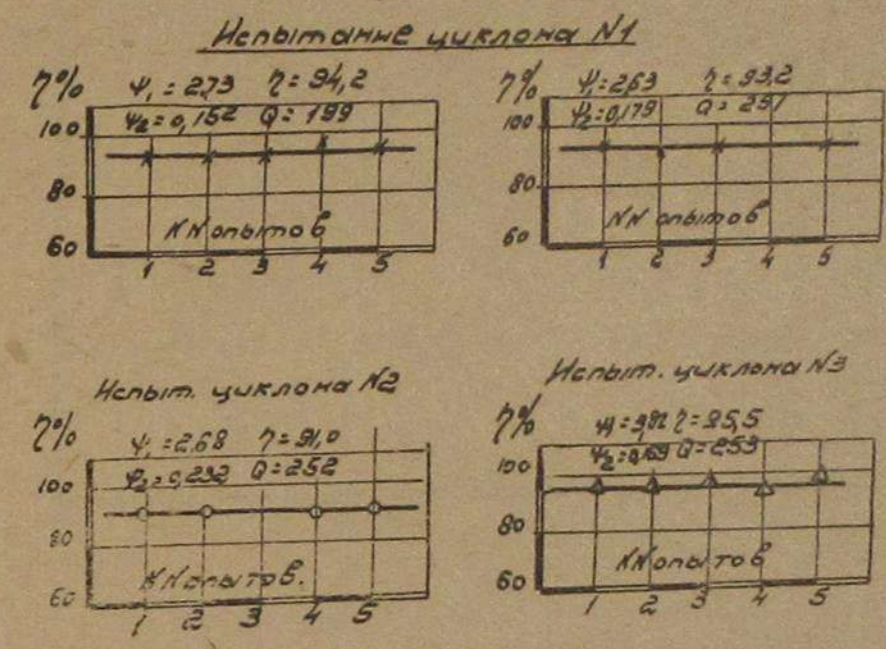 Испытание циклона N1
η%
Ψ₁ = 2,73 η = 94,2
Ψ₂ = 0,152 Q = 199
100
80
60
NN опытов
1 2 3 4 5
η%
Ψ₁ = 2,63 η = 93,2
Ψ₂ = 0,179 Q = 291
100
80
60
NN опытов
1 2 3 4 5
Испыт. циклона N2
η%
Ψ₁ = 2,68 η = 91,0
Ψ₂ = 0,232 Q = 252
100
80
60
NN опытов.
1 2 3 4 5
Испыт. циклона N3
η%
Q = 253
100
80
60
NN опытов
1 2 3 4 5